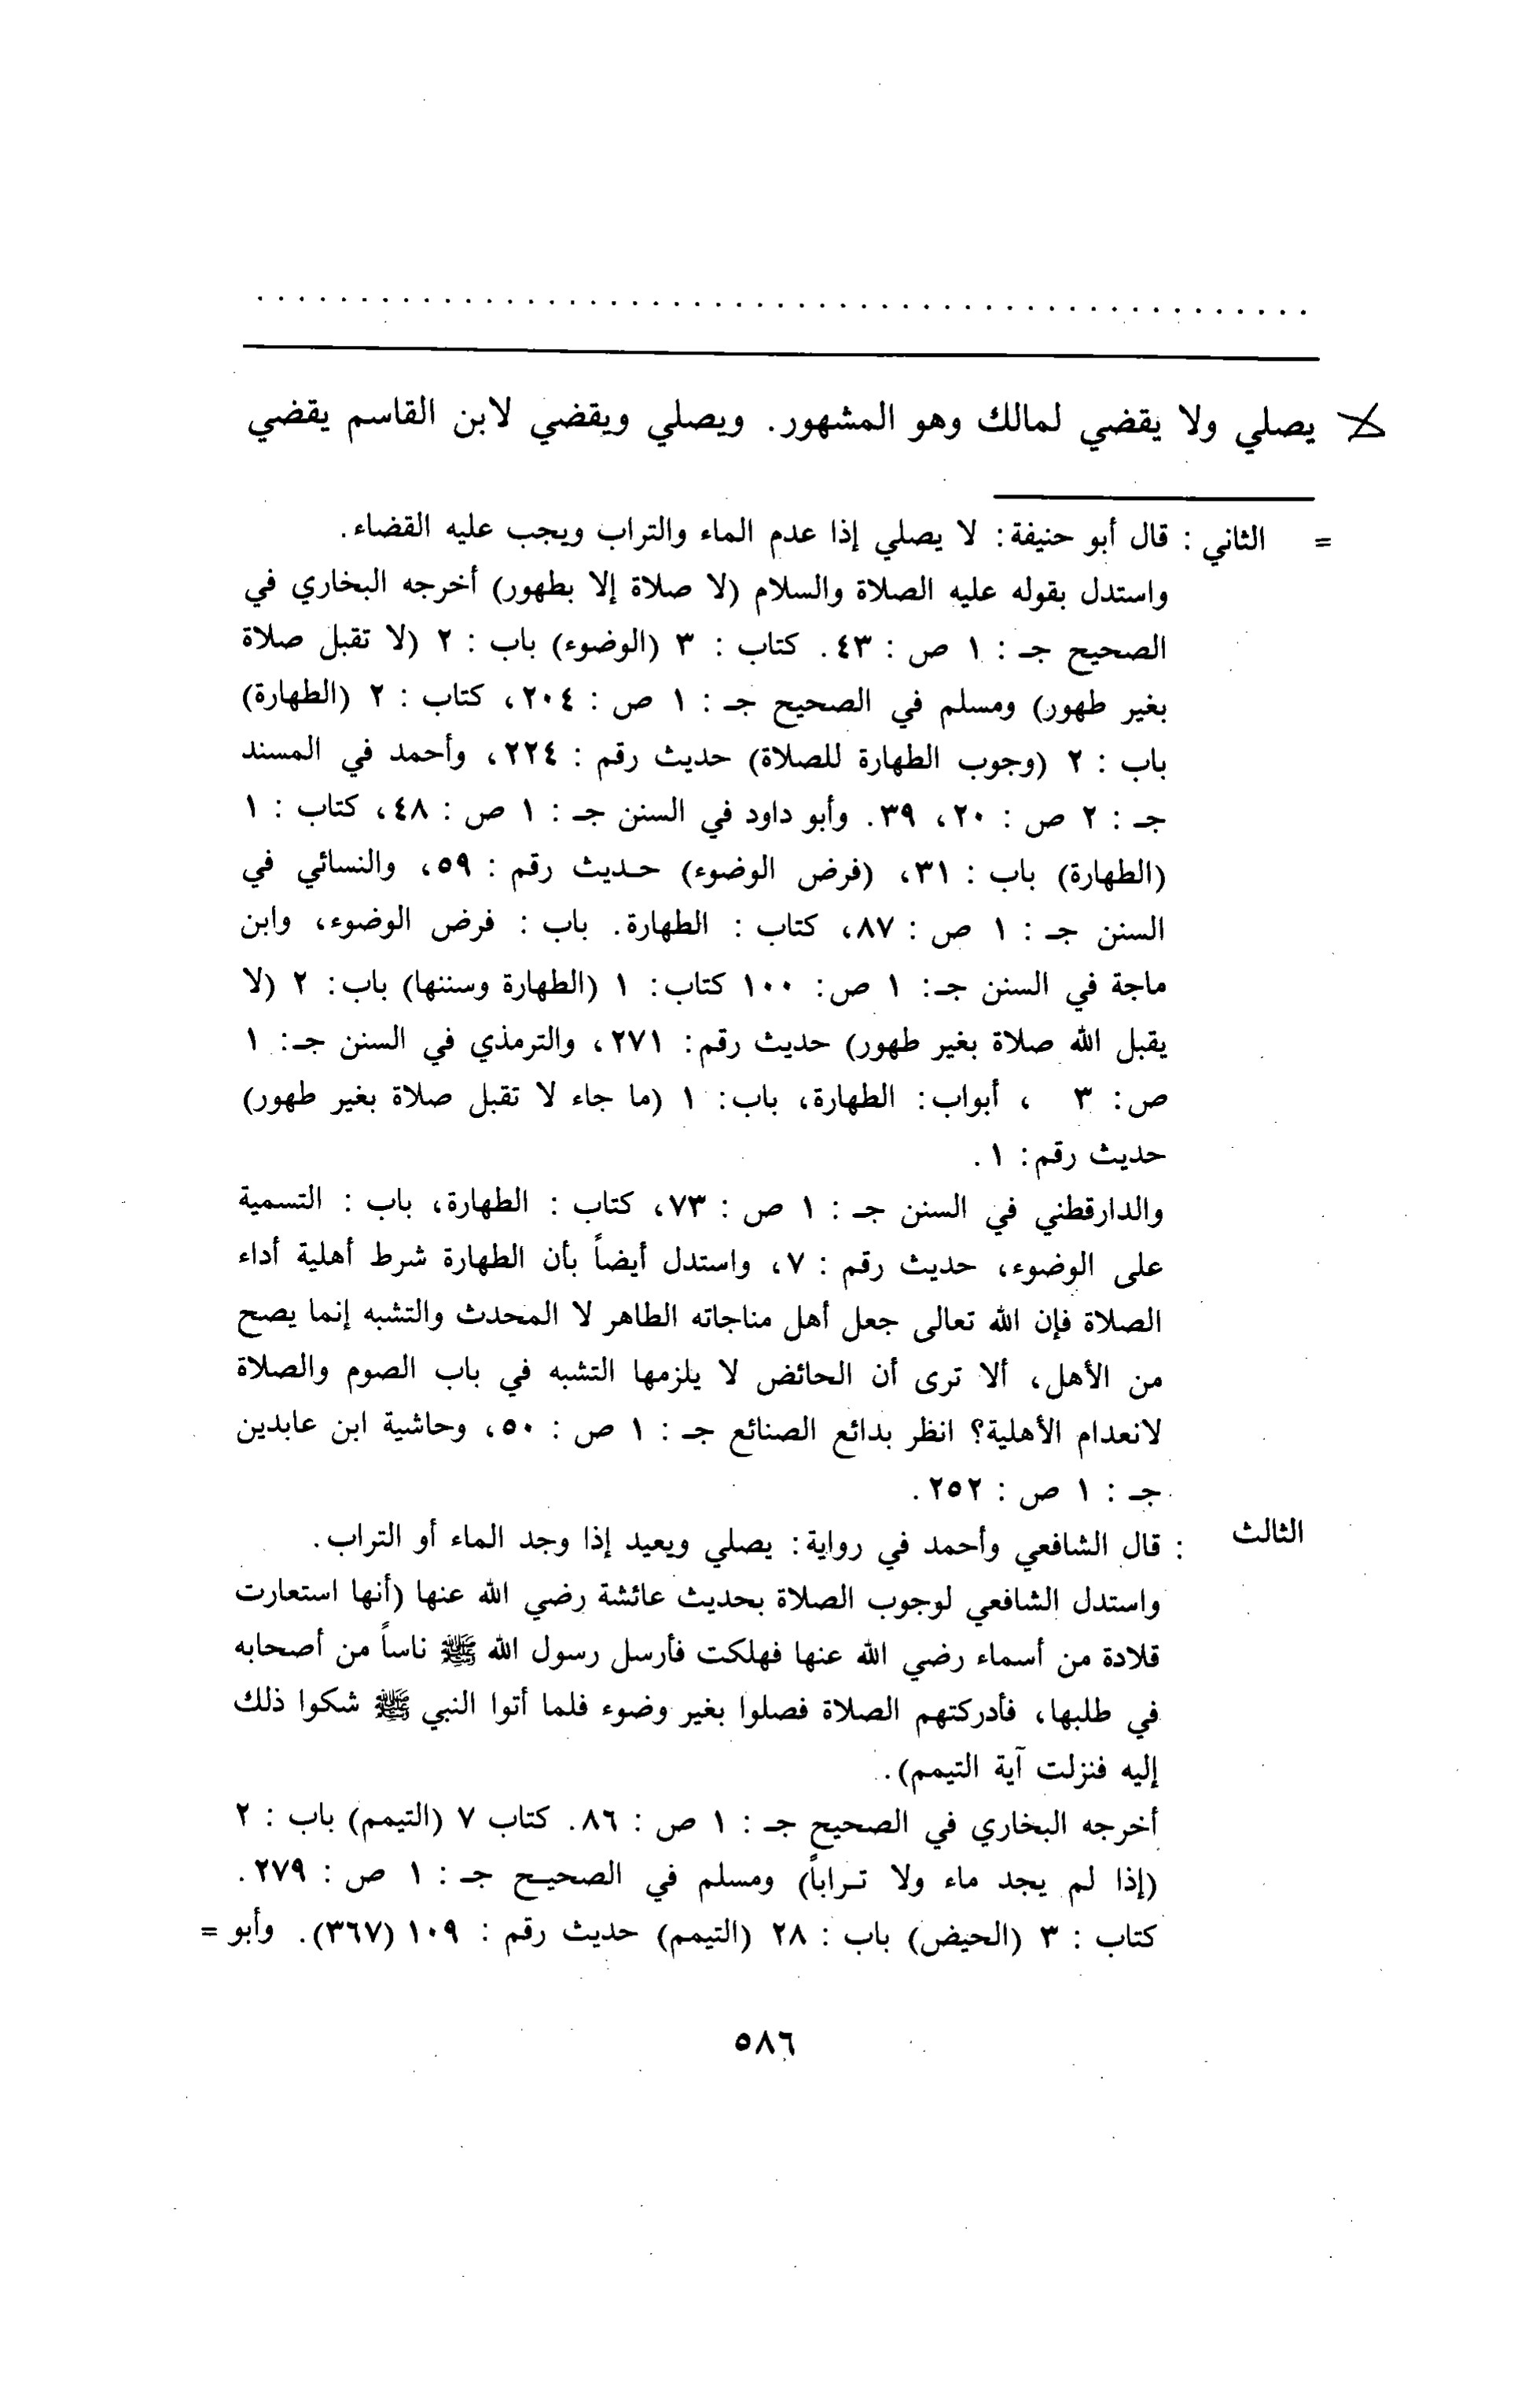 . . . . . . . . . . . . . . . . . . . . . . . . . . . . . . . . . . . . . . . . . . . . . . . . . . .
لا يصلي ولا يقضي لمالك وهو المشهور. ويصلي ويقضي لابن القاسم يقضي
= الثاني : قال أبو حنيفة: لا يصلي إذا عدم الماء والتراب ويجب عليه القضاء.
واستدل بقوله عليه الصلاة والسلام (لا صلاة إلا بطهور) أخرجه البخاري في
الصحيح جـ : ١ ص : ٤٣. كتاب : ٣ (الوضوء) باب : ٢ (لا تقبل صلاة
بغير طهور) ومسلم في الصحيح جـ : ١ ص : ٢٠٤، كتاب : ٢ (الطهارة)
باب : ٢ (وجوب الطهارة للصلاة) حديث رقم : ٢٢٤، وأحمد في المسند
جـ : ٢ ص : ٢٠، ٣٩. وأبو داود في السنن جـ : ١ ص : ٤٨، كتاب : ١
(الطهارة) باب : ٣١، (فرض الوضوء) حـديث رقم : ٥٩، والنسائي في
السنن جـ : ١ ص : ٨٧، كتاب : الطهارة. باب : فرض الوضوء، وابن
ماجة في السنن جـ: ١ ص: ١٠٠ كتاب: ١ (الطهارة وسننها) باب: ٢ (لا
يقبل الله صلاة بغير طهور) حديث رقم: ٢٧١، والترمذي في السنن جـ: ١
ص: ٣ ، أبواب: الطهارة، باب: ١ (ما جاء لا تقبل صلاة بغير طهور)
حديث رقم: ١.
والدارقطني في السنن جـ : ١ ص : ٧٣، كتاب : الطهارة، باب : التسمية
على الوضوء، حديث رقم : ٧، واستدل أيضاً بأن الطهارة شرط أهلية أداء
الصلاة فإن الله تعالى جعل أهل مناجاته الطاهر لا المحدث والتشبه إنما يصح
من الأهل، ألا ترى أن الحائض لا يلزمها التشبه في باب الصوم والصلاة
لانعدام الأهلية؟ انظر بدائع الصنائع جـ : ١ ص : ٥٠، وحاشية ابن عابدين
جـ : ١ ص : ٢٥٢.
الثالث : قال الشافعي وأحمد في رواية: يصلي ويعيد إذا وجد الماء أو التراب.
واستدل الشافعي لوجوب الصلاة بحديث عائشة رضي الله عنها (أنها استعارت
قلادة من أسماء رضي الله عنها فهلكت فأرسل رسول الله ﷺ ناساً من أصحابه
في طلبها، فأدركتهم الصلاة فصلوا بغير وضوء فلما أتوا النبي ﷺ شكوا ذلك
إليه فنزلت آية التيمم).
أخرجه البخاري في الصحيح جـ : ١ ص : ٨٦. كتاب ٧ (التيمم) باب : ٢
(إذا لم يجد ماء ولا تـراباً) ومسلم في الصحيـح جـ : ١ ص : ٢٧٩.
كتاب : ٣ (الحيض) باب : ٢٨ (التيمم) حديث رقم : ١٠٩ (٣٦٧). وأبو =
٥٨٦